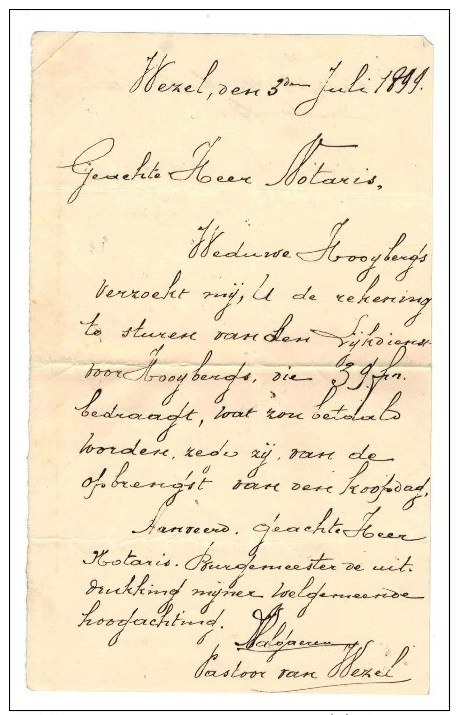 Wezel, den 3den Juli 1899.
Geachte Heer Notaris,
Weduwe Hooybergs
verzoekt mij, U de rekening
te sturen van den Lijkdienst
voor Hooybergs, die 39 fr.
bedraagt, wat zou betaald
worden, zede zij, van de
opbrengst van den koopdag.
Aanveerd, geachte Heer
Notaris-Burgemeester de uit-
drukking mijner welgemeende
hoogachting.
Pastoor van Wezel